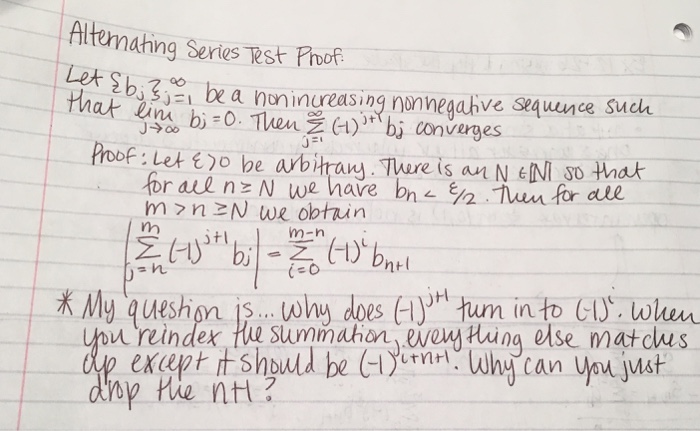 Alternating Series Test Proof.
Let {b_j}_{j=1}^∞ be a nonincreasing nonnegative sequence such
that lim_{j→∞} b_j = 0. Then Σ_{j=1}^∞ (-1)^{j+1} b_j converges
Proof: Let ε>0 be arbitrary. There is an N ∈ ℕ so that
for all n ≥ N we have b_n < ε/2. Then for all
m > n ≥ N we obtain
|Σ_{j=n}^m (-1)^{j+1} b_j| = Σ_{i=0}^{m-n} (-1)^i b_{n+i}
* My question is... why does (-1)^{j+1} turn in to (-1)^i. When
you reindex the summation, everything else matches
up except it should be (-1)^{i+n+1}. Why can you just
drop the n+1?